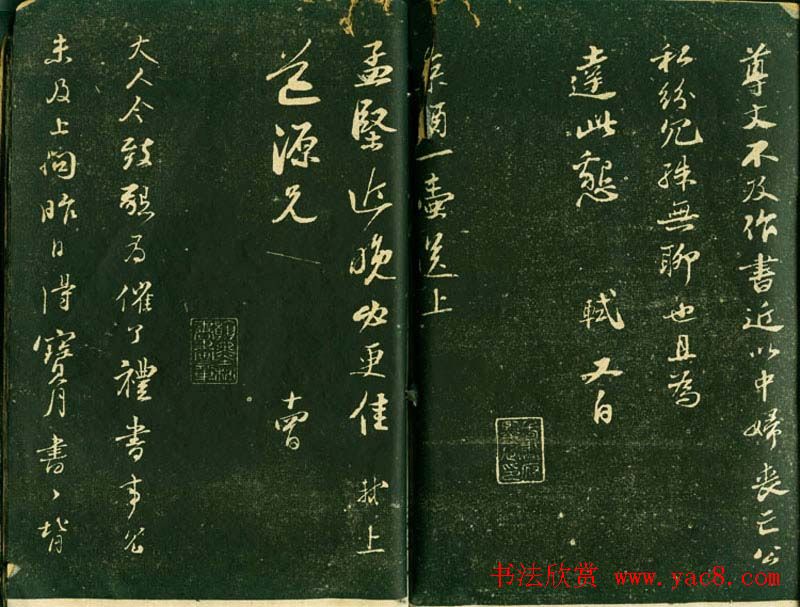 尊丈不及作書近以中婦喪亡公
私紛冗殊無聊也且為
達此懇 軾又白
酒一壺送上
孟堅近晚必更佳 軾上
道源兄 十四日
大人令致懇為催了禮書事冗
未及上問昨日得寶月書書背
书法欣赏 www.yac8.com